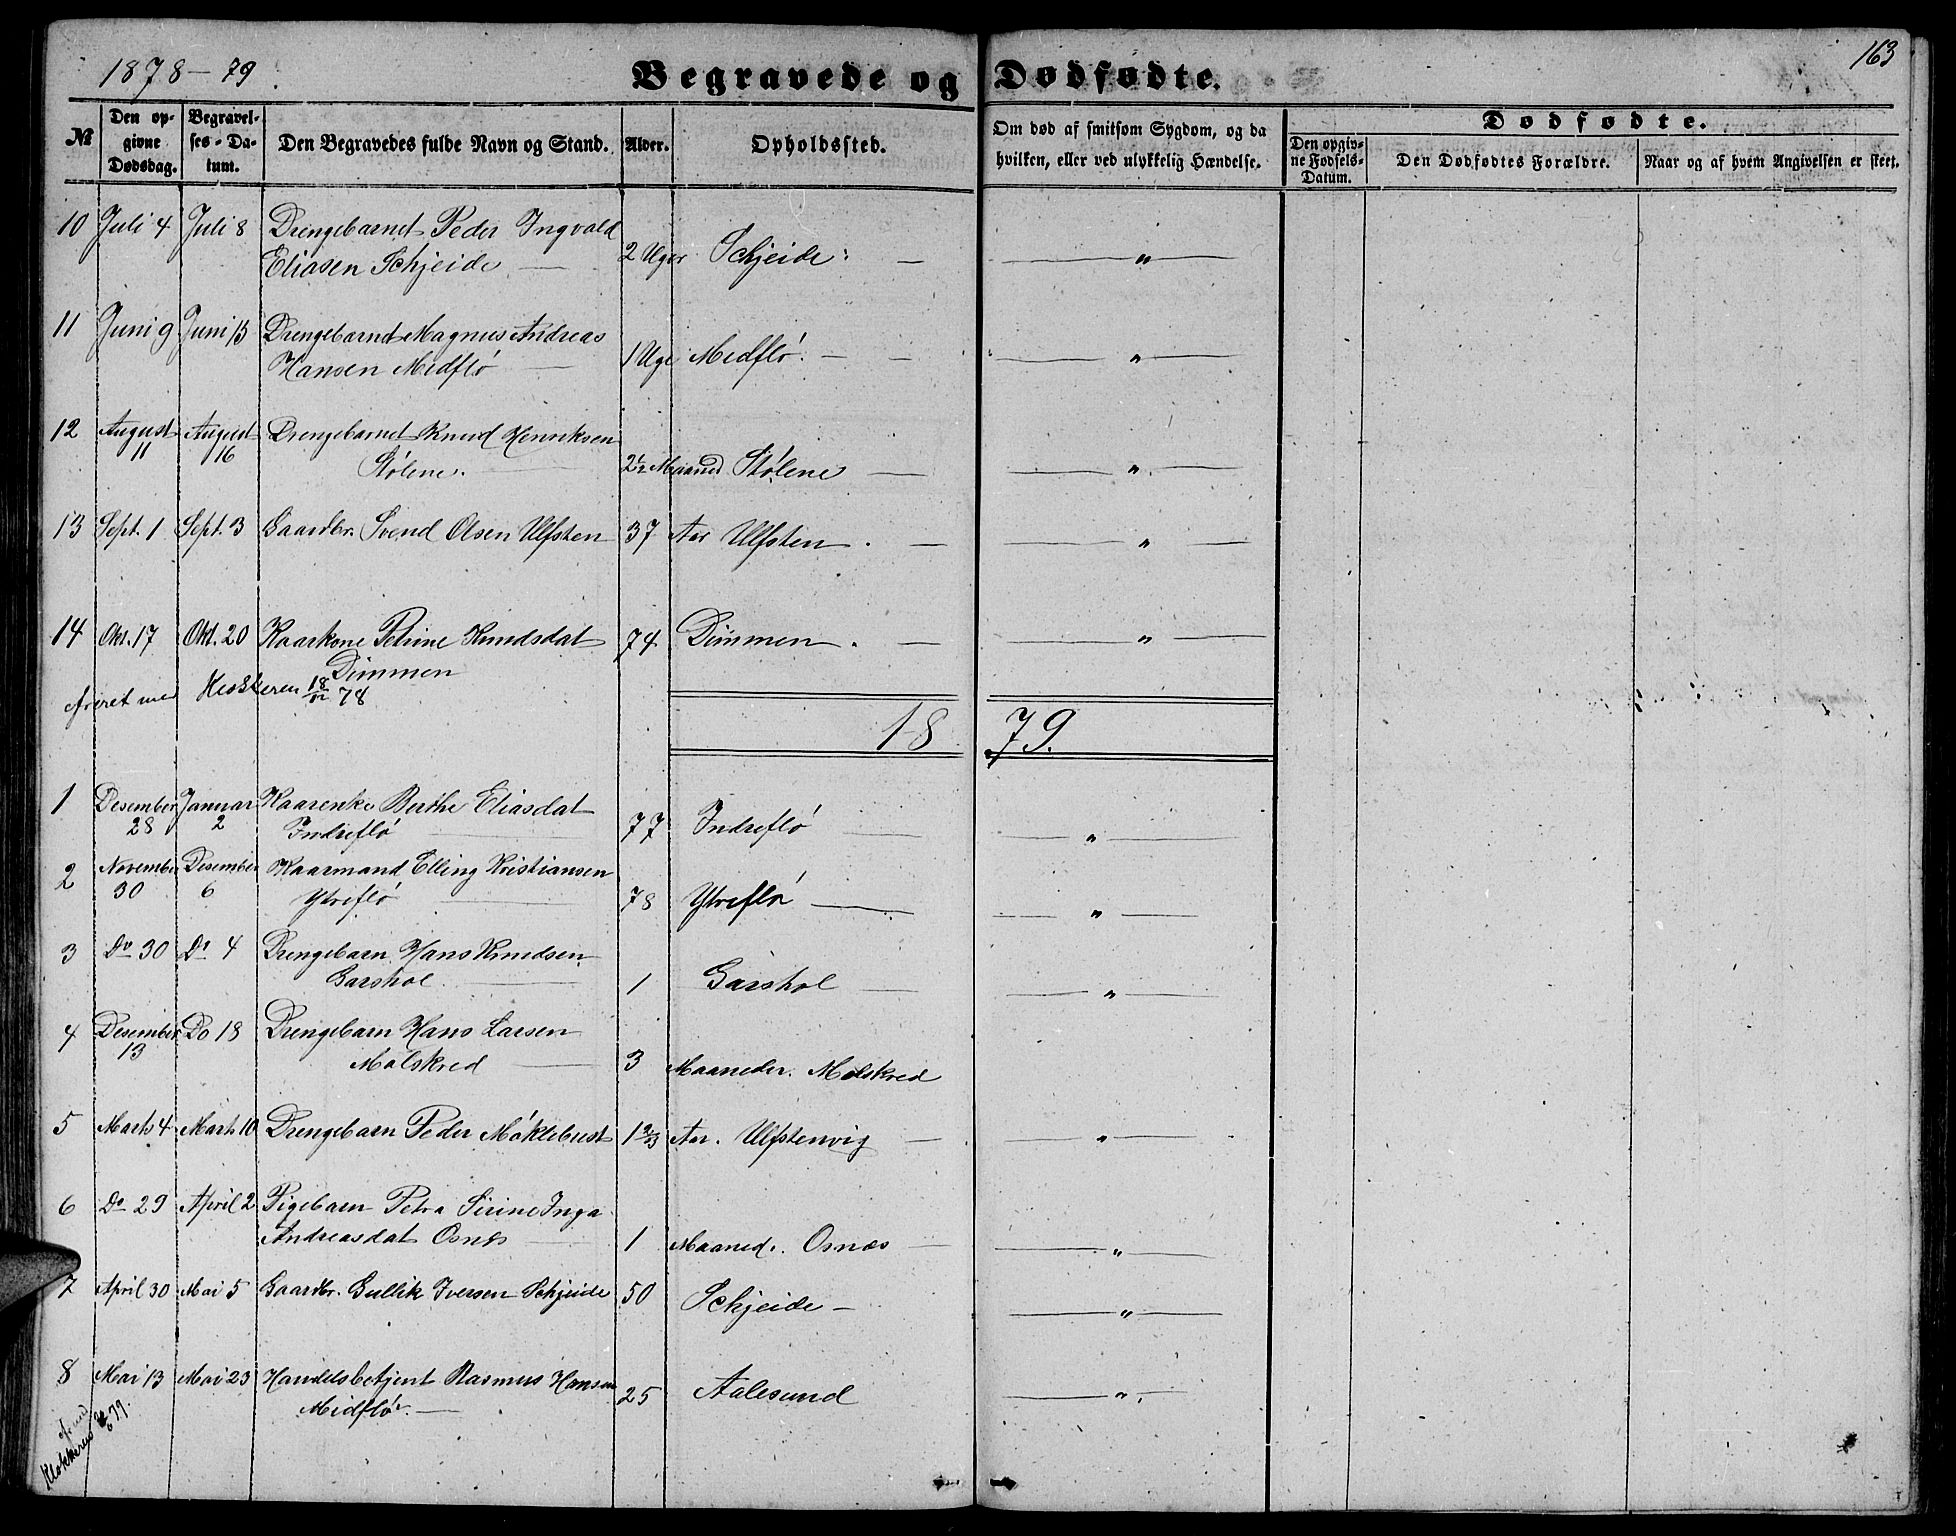 163
1878-79.
Begravede og Dødfødte.
№
Den op-
givne
Dødsdag.
Begravel-
ses-Da-
tum.
Den Begravedes fulde Navn og Stand.
Alder.
Opholdssted.
Om død af smitsom Sygdom, og da
hvilken, eller ved ulykkelig Hændelse.
Dødfødte.
Den opgiv-
ne Fødsels-
Datum.
Den Dødfødtes Forældre.
Naar og af hvem Angivelsen er skeet.
10 Juli 4 Juli 8 Drengebarnet Peder Ingvald
Eliasen Schjeide — 2 Uger Schjeide: — — „ —
11 Juni 9 Juni 13 Drengebarnet Magnus Andreas
Hansen Medflø — 1 Uge Medflø. — — — „ —
12 August 11 August 16 Drengebarnet Knud Henriksen
Stølene. — 2½ Maaned Stølene — — „ —
13 Sept. 1 Sept. 3 Gaardbr. Svend Olsen Ulfsten 37 Aar Ulfsten. — — „ —
14 Okt. 17 Okt. 20 Kaarkone Petrine Knudsdat 74 Dimmen. — — „ —
Dimmen
med Klokkeren 18/12 78
1879.
1 Desember 28 Januar 2 Kaarenke Berthe Eliasdat
Indreflø — 77 Indreflø — — „ —
2 November 30 Desember 6 Kaarmand Elling Kristiansen
Ytreflø — 78 Ytreflø — — „ —
3 Do 30 Do 4 Drengebarn Hans Knudsen
Garshol — 1 Garshol — — „ —
4 Desember 13 Do 18 Drengebarn Hans Larsen
Molskred — 3 Maaneder. Molskred
5 Marts 4 Marts 10 Drengebarn Peder Møklebust 1 2/3 Aar. Ulfstenvig — — „ —
6 Do 29 April 2 Pigebarn Petra Sirine Inga
Andreasdat Osnes — 1 Maaned. Osnæs — — „ —
7 April 30 Mai 5 Gaardbr. Gullik Iversen Schjeide 50 Schjeide — — „ —
8 Mai 13 Mai 23 Handelsbetjent Rasmus Hansen
Midflø. — 25 Aalesund — „ —
Klokkeren
79.